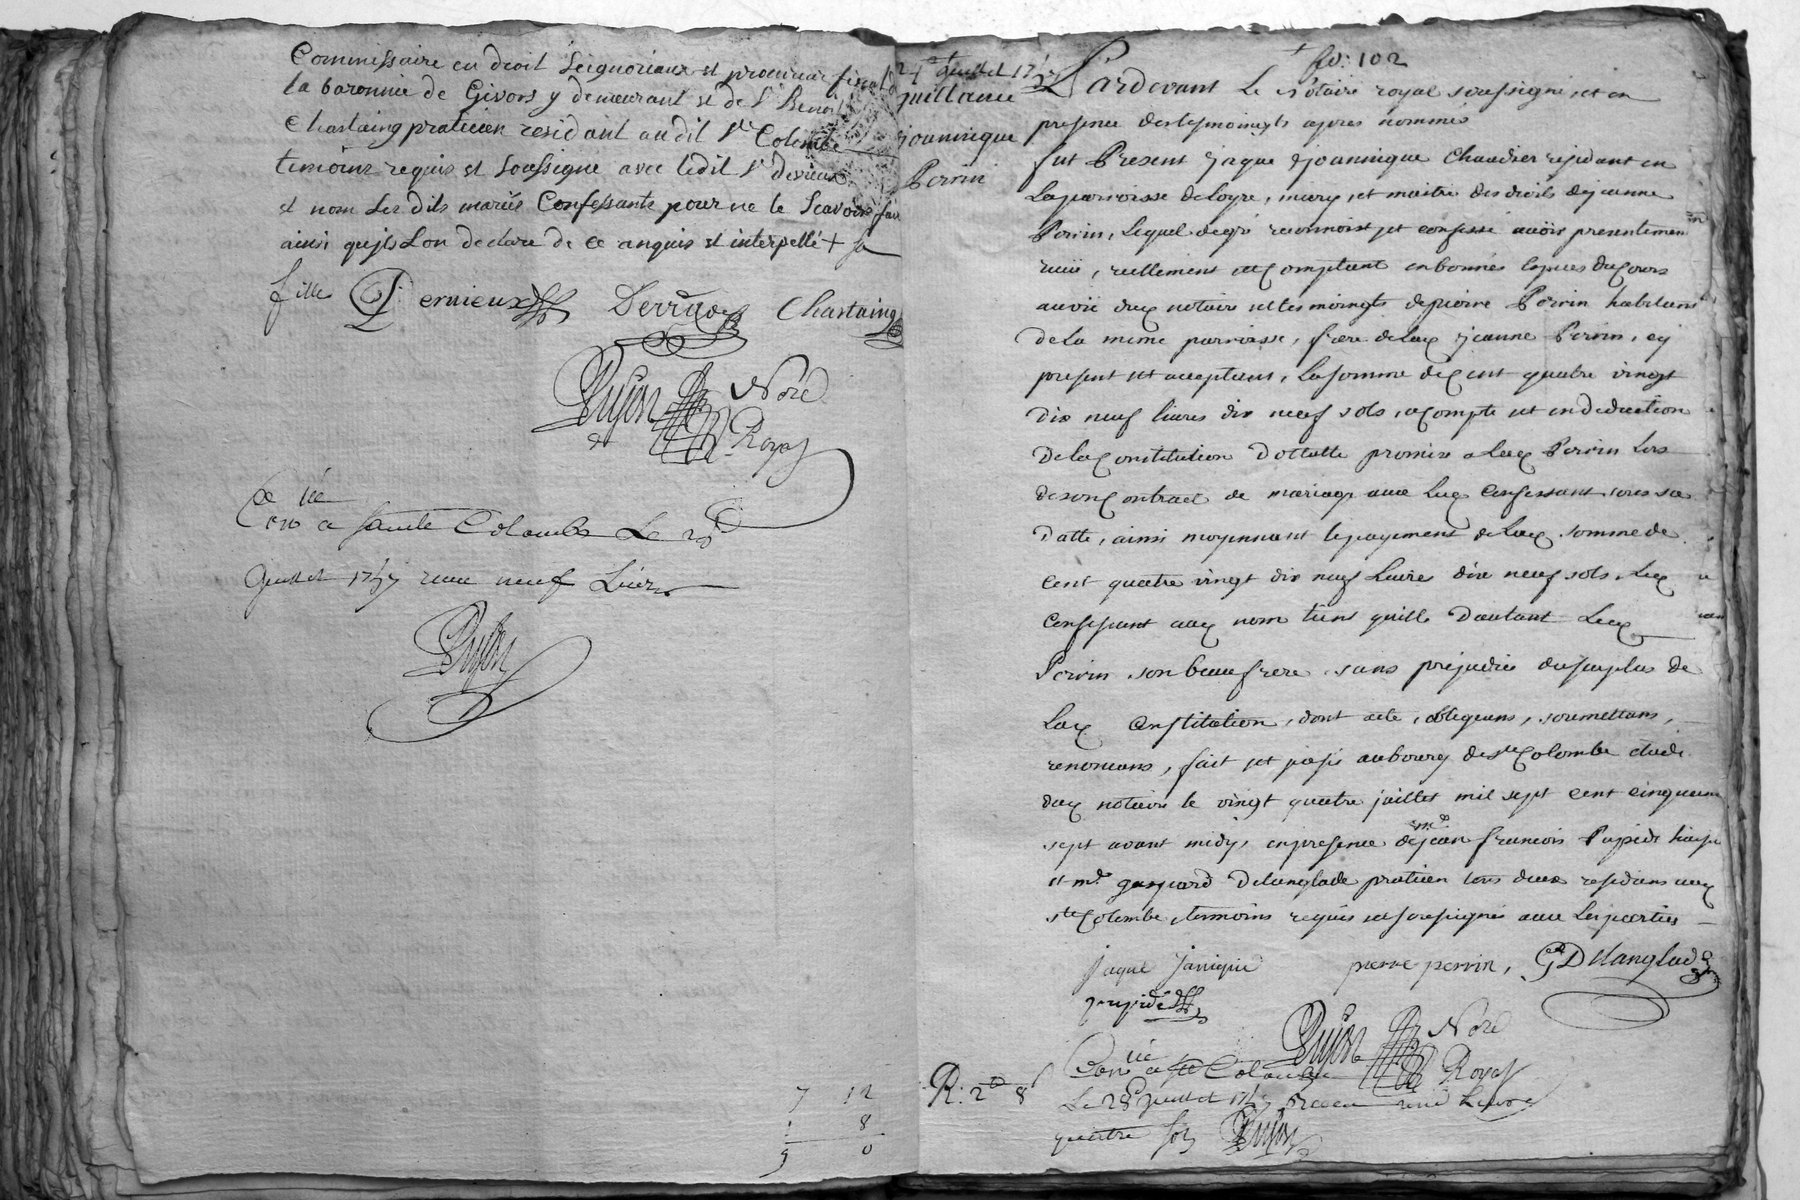 Commissaire en droit seigneuriaux et procureur fiscal
la baronnie de Givors y demeurant et de Sr Benoit
Chastaing praticien residant audit Ste Colombe
temoins requis et soussigne avec ledit Sr Dervieux
et non les dits mariés Confessants pour ne le Scavoir fair
ainsi qujls lon declare de ce anquis et interpellé + sa
fille Dervieux Chastaing
Dujon Nore
Royal
a Sainte Colombe Le 28
Juillet 1757 receu neuf Livres
Dujon
7 12
8
9 0
fo: 102
24e juillet 1757
quittance
jouannique
Perrin
Pardevant Le Notaire royal soussigne, et en
presence des tesmoingts apres nommés
fut Present jaque jouannique Chaudier residant en
La parroisse de Loyre, mary, et maitre des droits de jeanne
Perrin, Lequel de gré reconnoist et confesse avoir presentement
receu, reellement et Comptant en bonnes Especes du Cours
au veü dud notaire et tesmoingts de pierre Perrin habitant
de la meme parroisse, frere de lad jeanne Perrin, cy
present et acceptant, La somme de Cent quatre vingt
dix neuf livres dix neuf sols, a Compte et en deduction
de la Constitution Dottalle promise a Lad Perrin Lors
de son Contract de mariage avec Led Confessant sous sa
datte, ainsi moyennant le payement de Lad somme de
Cent quatre vingt dix neuf Livres dix neuf sols, Led
Confessant aud nom tient quitte D'autant Led
Perrin son beaufrere sans prejudice du surplus de
Lad Constitution, dont acte, obligeans, soumettans,
renoncans, fait et passé au bourg de Ste Colombe etude
dud notaire le vingt quatre juillet mil sept cent cinquante
sept avant midy, en presence de sr jean francois Papidé
et me gaspard Delanglade praticien tous deux residans aud
Ste Colombe, temoins requis et soussignés avec Les parties
jaque janique pierre perrin, G Delanglade
papidé
Dujon Nore
Royal
R: 2tt 8s
a Ste Colombe
Le 28 Juillet 1757 Receu une Livre
quatre sols Dujon